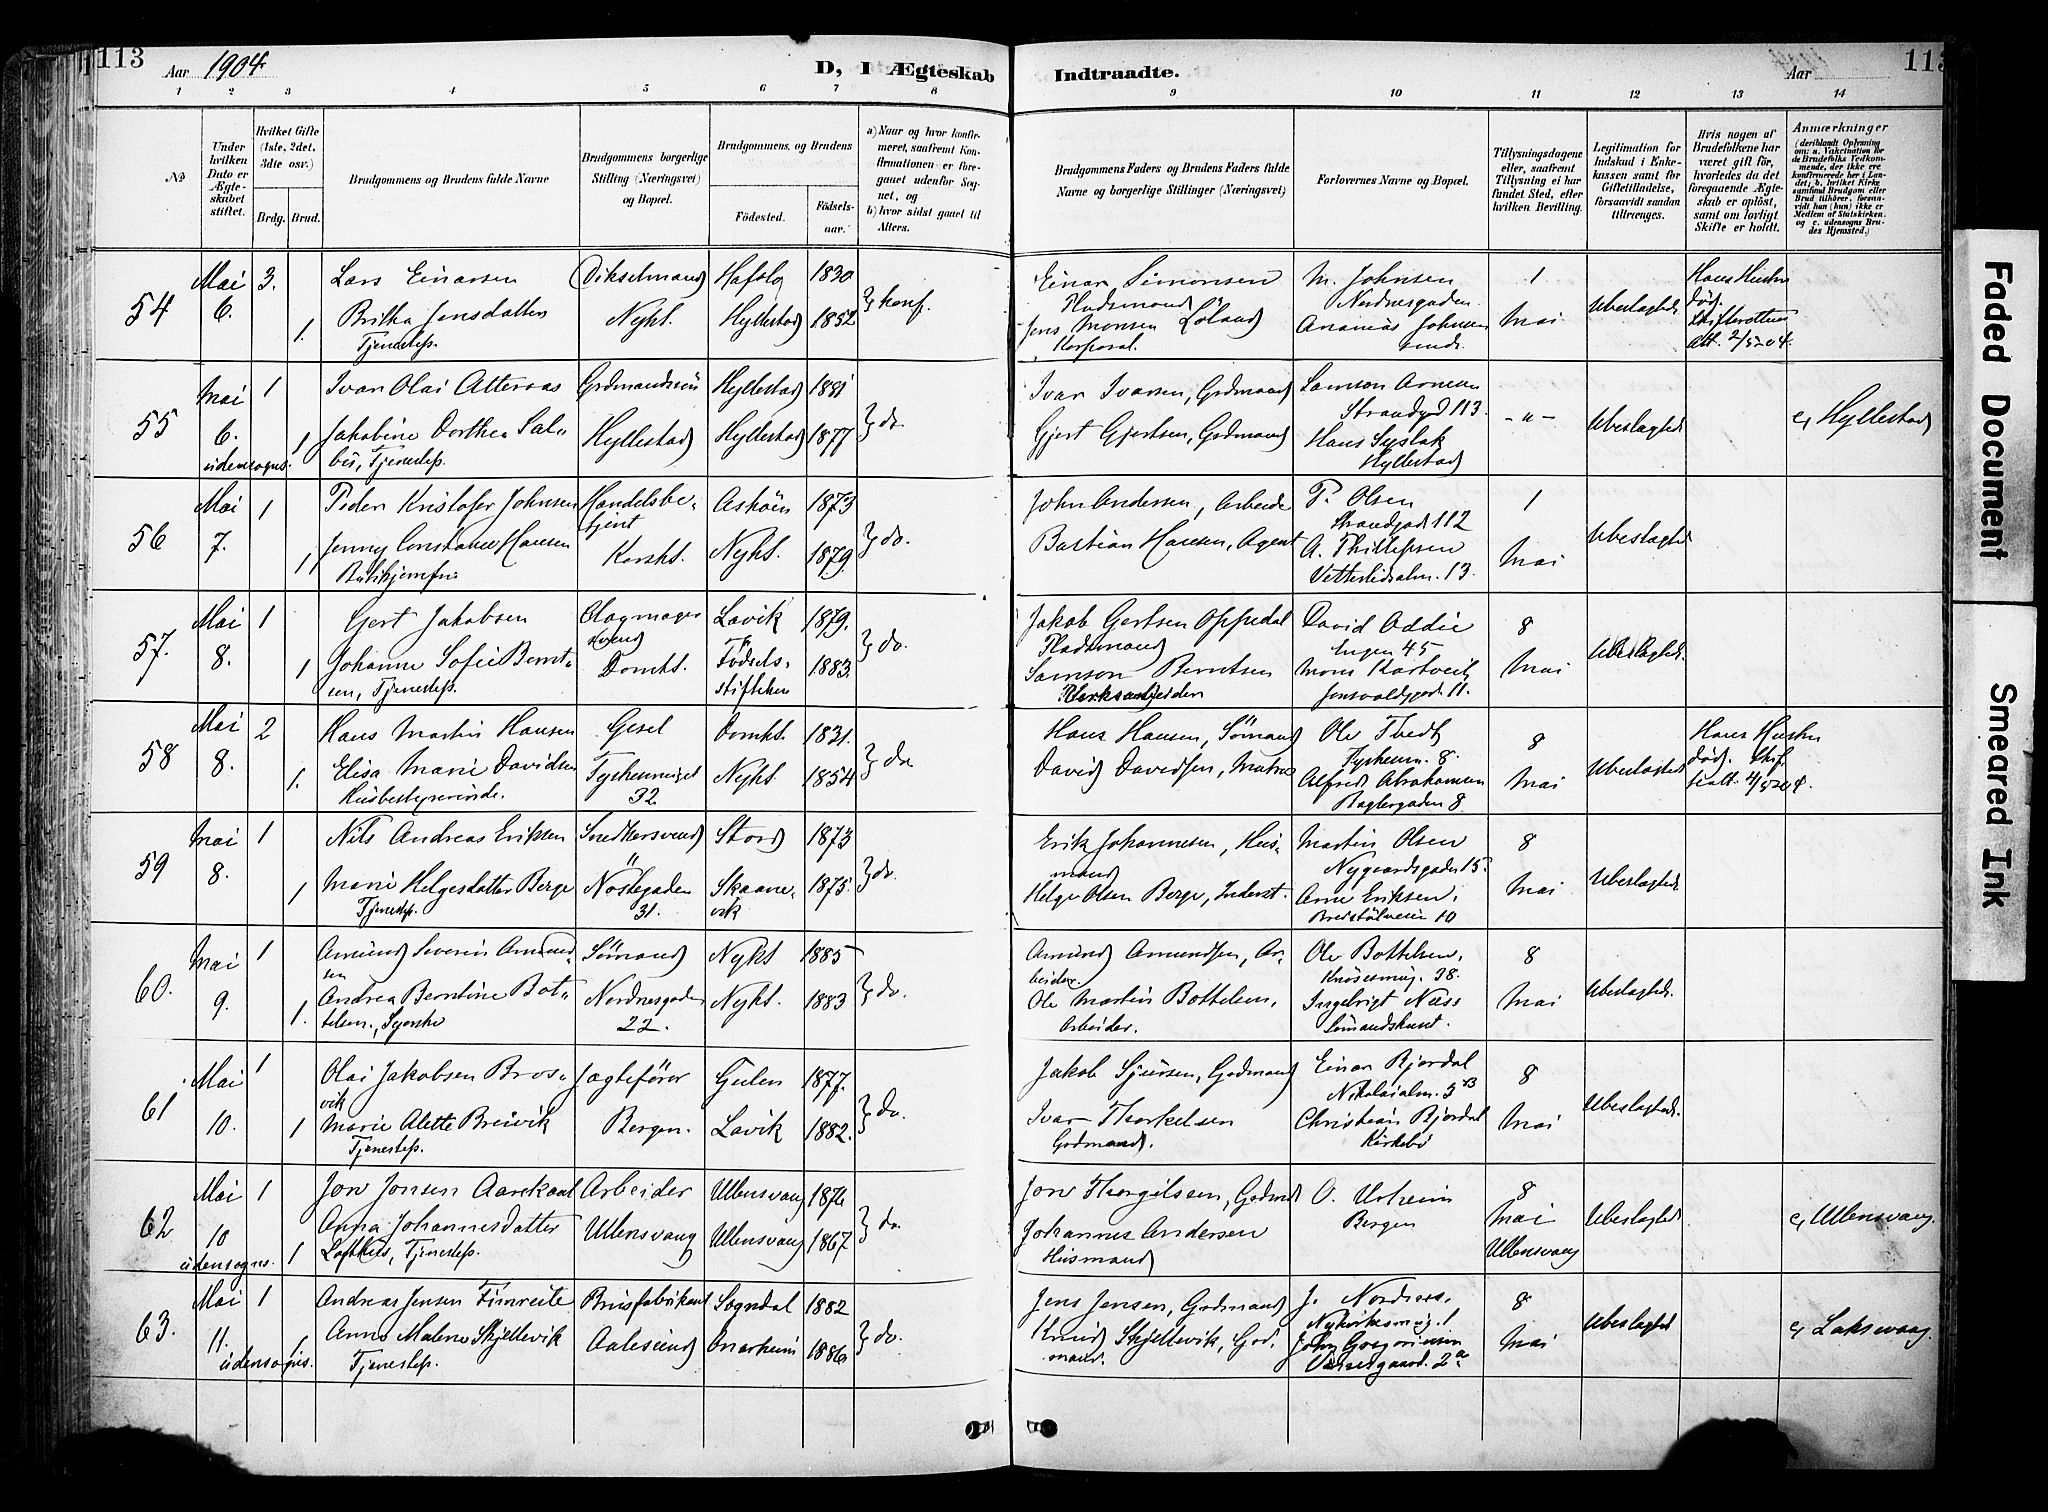 113
Aar 1904
D, I Ægteskab
Indtraadte.
Aar
113
1 2 3 4 5 6 7 8 9 10 11 12 13 14
No
Under hvilken Dato er Ægteskabet stiftet.
Hvilket Gifte (1ste, 2det, 3dte osv.)
Brdg. Brud.
Brudgommens og Brudens fulde Navne
Brudgommens borgerlige Stilling (Næringsvei) og Bopæl.
Brudgommens og Brudens
Fødested.
Fødselsaar.
a) Naar og hvor konfirmeret, saafremt Konfirmationen er foregaaet udenfor Sognet, og
b) hvor sidst gaaet til Alters.
Brudgommens Faders og Brudens Faders fulde Navne og borgerlige Stillinger (Næringsvei)
Forlovernes Navne og Bopæl.
Tillysningsdagene eller, saafremt Tillysning ei har fundet Sted, efter hvilken Bevilling.
Legitimation for Indskud i Enkekassen samt for Giftetilladelse, forsaavidt saadan tiltrænges.
Hvis nogen af Brudefolkene har været gift før, hvorledes da det foregaaende Ægteskab er opløst, samt om lovligt Skifte er holdt.
Anmærkninger
(deriblandt Oplysning om: a. Vakcination for de Brudefolks Vedkommende, der ikke ere konfirmerede her i Landet; b. hvilket Kirkesamfund Brudgom eller Brud tilhører, forsaavidt han (hun) ikke er Medlem af Statskirken, og c. udensogns Brudes Hjemsted.)
54 Mai 6. 3. Lars Einarsen
1. Britha Jensdatter
Tjenestep.
Nykt.
Hafslo 1830
Hyllestad 1852
konf.
Einar Simonsen
Pladsmand
Jens Monsen Løland
Korporal.
M. Johnsen
Nordnesgaden.
Ananias Johnsen
1 Mai
Ubeslægtede
Hans Hustru
død.
Skifteretten
Att. 2/5 04.
55 Mai 6. 1 Ivar Olai Atteraas
udensogns. 1 Jakobine Dorthea Salbu, Tjenestep.
Grdmandssøn
Hyllestad
Hyllestad 1881
Hyllestad 1877
do.
Ivar Ivarsen, Grdmand
Gjert Gjertsen, Grdmand
Samson Arnesen
Strandgd 113.
Hans Syslak
Hyllestad
-"-
Ubeslægtede
c, Hyllestad
56 Mai 7. 1 Peder Kristofer Johnsen
1 Jenny Constance Hansen
Handelsbetjent
Korskt.
Askøen 1873
Nykt. 1879.
do.
John Andersen, Arbeide
Bastian Hansen, Agent
P. Olsen
Strandgad 112
A. Phillipsen
Vetterlidsalm. 13.
1 Mai
Ubeslægtede
57. Mai 8. 1 Gert Jakobsen
1 Johanne Sofie Berntsen, Tjenestep.
Domkt.
Lavik 1879.
Fødselsstiftelsen 1883.
do.
Jakob Gertsen Oppedal
Pladsmand
Samson Berntsen
David Addie
Engen 45
Mons Kartveit
8 Mai
Ubeslægtede.
58 Mai 8. 2 Hans Martin Hansen
1. Elisa Marie Davidsen
Husbestyrerinde.
32
Domkt. 1831.
Nykt 1854
do
Hans Hansen, Sømand
David Davidsen, Matros
Ole Tvedt
8.
Alfred Abrahamsen
Baglergaden 8.
8 Mai
Ubeslægtede
Hans Hustru
død. Skif
teatt. 4/5 204.
59 Mai 8. 1 Nils Andreas Eriksen
1 Marie Helgesdatter Berge
Tjenestep.
Snedkersvend
Nøstegaden
31.
Stord 1873
Skaanevik 1875.
do.
Erik Johannesen, Husmand
Helge Olsen Berge, Inderst.
Martin Olsen
Nygaardsgaden 15.
Arne Eriksen,
Breistølveien 10
8 Mai
Ubeslægtede.
60. Mai 9. 1 Amund Severin Amundsen
1. Andrea Berntine Bottelsen, Syerske
Sømand
Nordnesgaden
22.
Nykt 1885
Nykt. 1883
do.
Amund Amundsen, Arbeider
Ole Martin Bottelsen,
Arbeider.
Ole Bottelsen,
Knøsesmug. 38.
Ingebrigt Næss
8 Mai
Ubeslægtede.
61 Mai 10. 1 Olai Jakobsen Brosvik
1 Marie Alette Breivik
Tjenestep.
Jagtefører
Bergen.
Gulen 1877.
Lavik 1882.
do.
Jakob Sjursen, Grdmand
Ivar Thorkelsen
Grdmand.
Einar Bjordal
Nikolaialm. 3
Christian Bjordal
Kirkebø
8 Mai
Ubeslægtede.
62 Mai 10 1 Jon Jonsen Aarekoal
udensogns. 1 Anna Johannesdatter
Lofthus, Tjenestep.
Arbeider
Ullensvang
Ullensvang 1876
Ullensvang 1867
do.
Jon Thorgilsen, Grdmd
Johannes Andersen
Husmand
O. Urheim
Bergen
8 Mai
Ullensvang
Ubeslægtede
c, Ullensvang.
63. Mai 11. 1 Andreas Jensen Fimreite
udensogns. 1 Anna Malene Skjellevik
Tjenestep.
Brusfabrikant
Aalesund
Sogndal 1882
Onarheim 1886
do.
Jens Jensen, Grdmand
Knud Skjellevik, Grdmand.
J. Nordnes,
Nykirkesmug. 1
John Gregoriussen
2a
8 Mai
Ubeslægtede
c, Laksevaag.
Faded Document
Smeared Ink